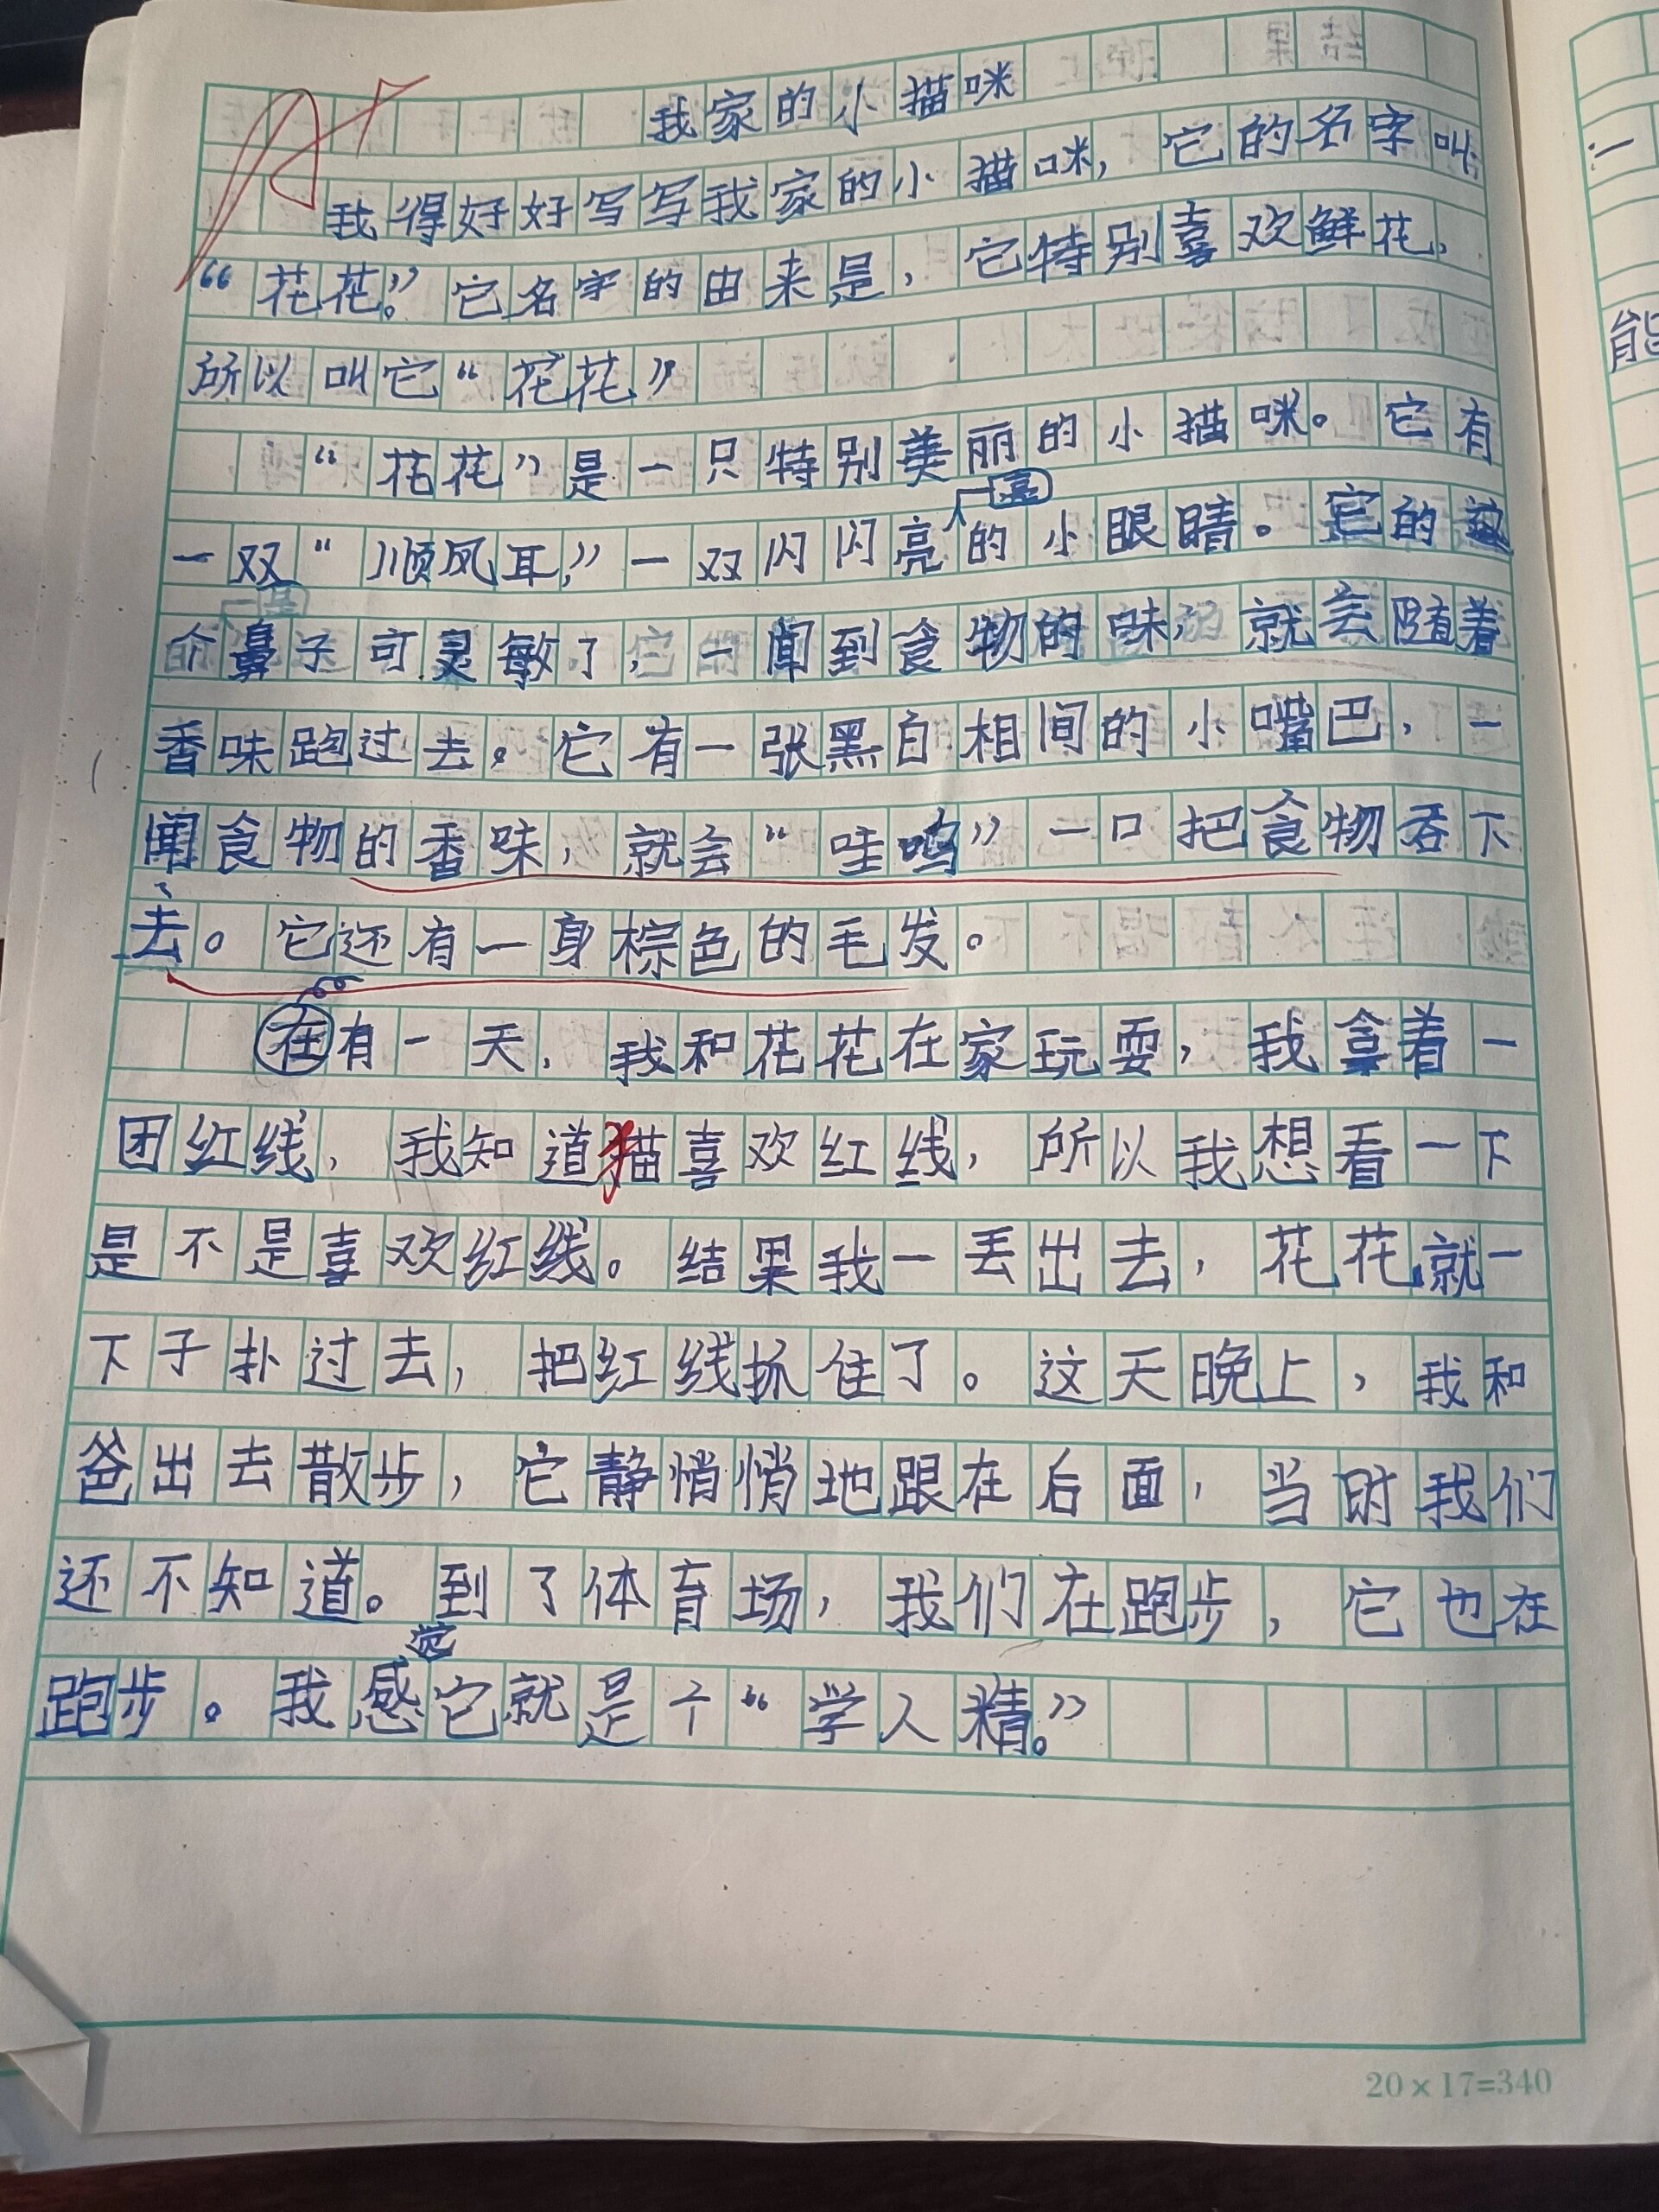 我家的小猫咪
我得好好写写我家的小猫咪，它的名字叫
“花花”。它名字的由来是，它特别喜欢鲜花，
所以叫它“花花”
“花花”是一只特别美丽的小猫咪。它有
一双“顺风耳，”一双闪闪亮亮的小眼睛。它的这
个鼻子可灵敏了，一闻到食物的味就会随着
香味跑过去。它有一张黑白相间的小嘴巴，一
闻食物的香味，就会“哇呜”一口把食物吞下
去。它还有一身棕色的毛发。
在有一天，我和花花在家玩耍，我拿着一
团红线，我知道猫喜欢红线，所以我想看一下
是不是喜欢红线。结果我一丢出去，花花就一
下子扑过去，把红线抓住了。这天晚上，我和
爸出去散步，它静悄悄地跟在后面，当时我们
还不知道。到了体育场，我们在跑步，它也在
跑步。我感觉它就是个“学人精。”
20×17=340
能